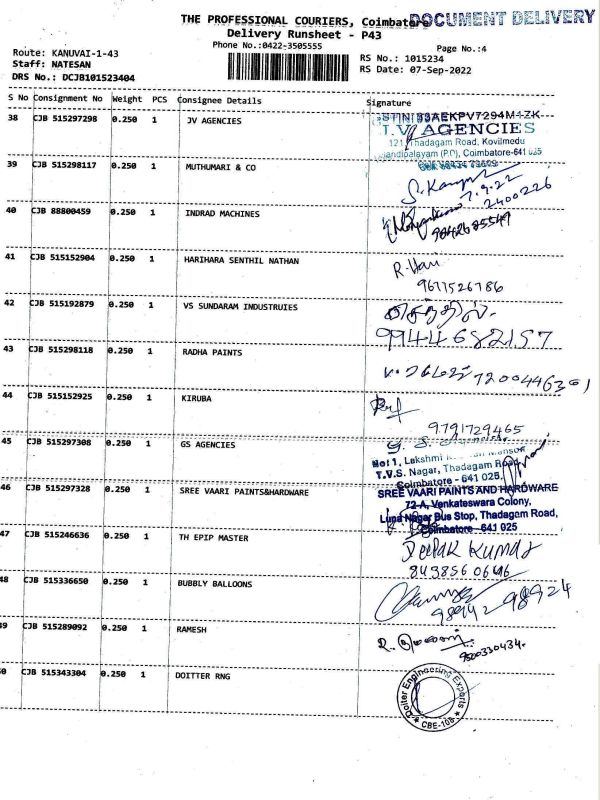 THE PROFESSIONAL COURIERS, Coimbatore
DOCUMENT DELIVERY
Delivery Runsheet - P43
Phone No.:0422-3505555
Page No.:4
Route: KANUVAI-1-43
RS No.: 1015234
Staff: NATESAN
RS Date: 07-Sep-2022
DRS No.: DCJB101523404
S No Consignment No Weight PCS Consignee Details Signature
38 CJB 515297298 0.250 1 JV AGENCIES
GSTIN:33AEKPV7294M1ZK
T.V. AGENCIES
121, Thadagam Road, Kovilmedu
Coimbatore-641 025
39 CJB 515298117 0.250 1 MUTHUMARI & CO
7.9.22
2400226
40 CJB 88800459 0.250 1 INDRAD MACHINES
9842685549
41 CJB 515152904 0.250 1 HARIHARA SENTHIL NATHAN
R.Hari
9677526786
42 CJB 515192879 0.250 1 VS SUNDARAM INDUSTRUIES
செந்தில்.
9944682157
43 CJB 515298118 0.250 1 RADHA PAINTS
7200446301
44 CJB 515152925 0.250 1 KIRUBA
9791729465
45 CJB 515297308 0.250 1 GS AGENCIES
No: 1, Lakshmi
T.V.S. Nagar, Thadagam Road,
Coimbatore - 641 025.
46 CJB 515297328 0.250 1 SREE VAARI PAINTS&HARDWARE
SREE VAARI PAINTS AND HARDWARE
72-A, Venkateswara Colony,
Luna Nagar Bus Stop, Thadagam Road,
Coimbatore - 641 025
47 CJB 515246636 0.250 1 TH EPIP MASTER
Deepak Kumar
8438560646
48 CJB 515336650 0.250 1 BUBBLY BALLOONS
98942 98924
49 CJB 515289092 0.250 1 RAMESH
9500330434.
50 CJB 515343304 0.250 1 DOITTER RNG
Doiter Engineering Experts
CBE-108